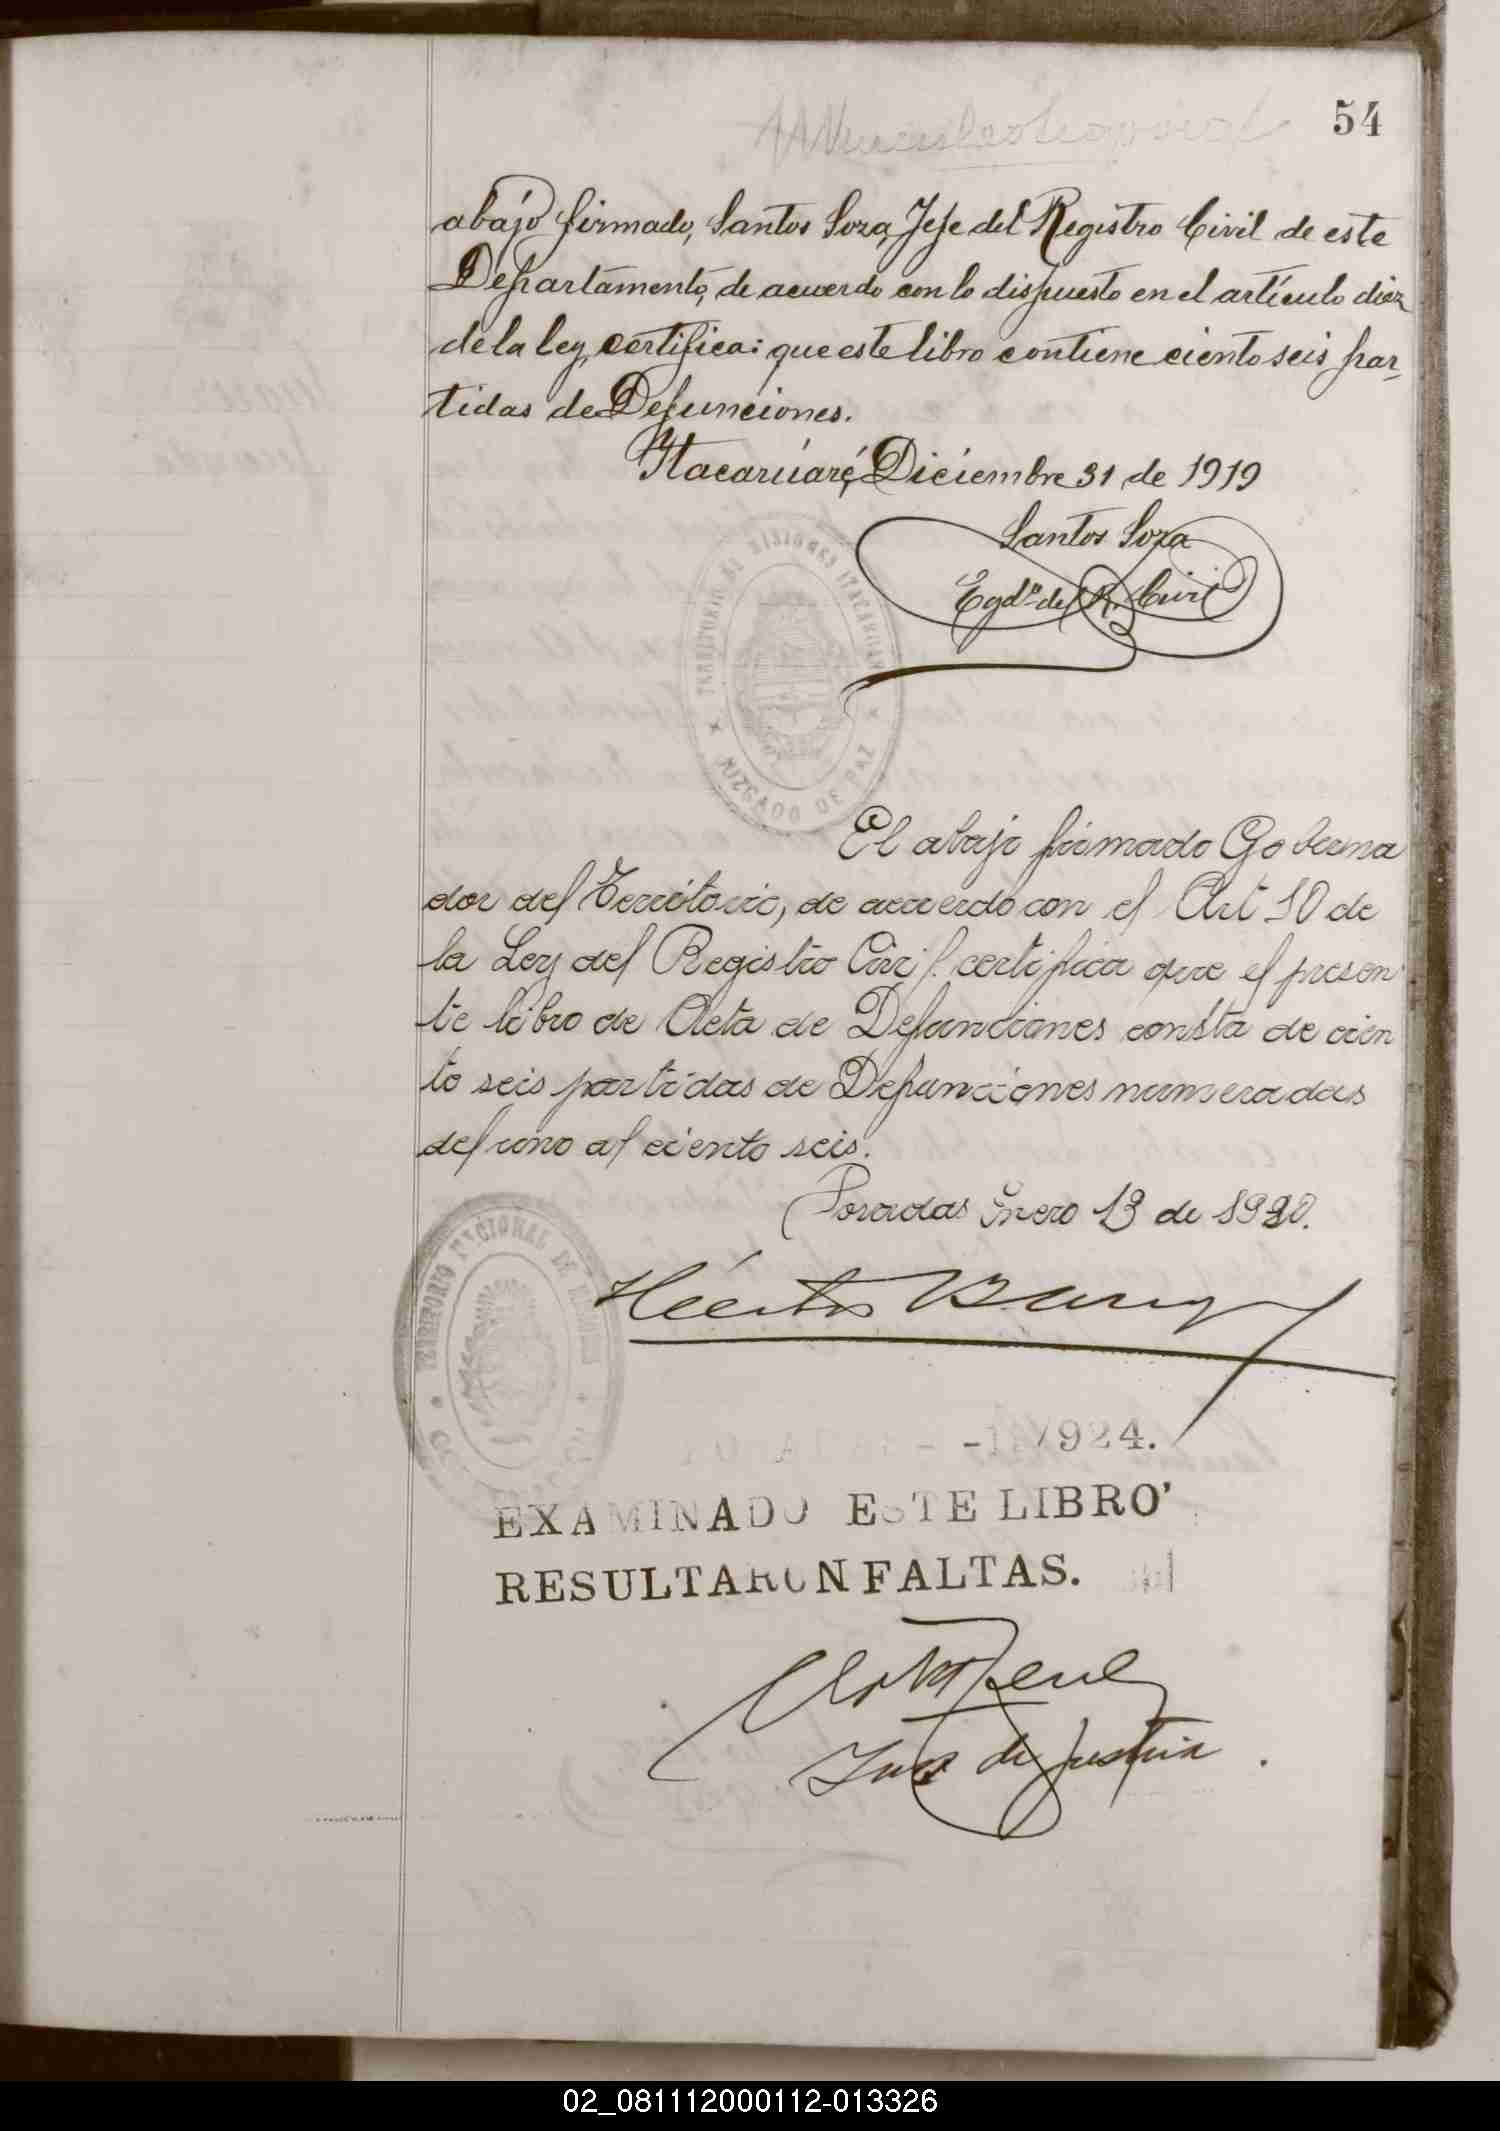 54
abajo firmado, Santos Soza, Jefe del Registro Civil de este
Departamento, de acuerdo con lo dispuesto en el artículo diez
de la ley, certifica: que este libro contiene ciento seis par-
tidas de Defunciones.
Itacaruaré, Diciembre 31 de 1919
Santos Soza
Egdo del R. Civil
TERRITORIO DE MISIONES ITACARUARE
JUZGADO DE PAZ
El abajo firmado Goberna
dor del Territorio, de acuerdo con el Art 10 de
la Ley del Registro Civil. certifica que el presen
te libro de Acta de Defunciones consta de cien
to seis partidas de Defunciones numeradas
del uno al ciento seis.
Posadas Enero 13 de 1920.
TERRITORIO NACIONAL DE MISIONES
Héctor
1924.
EXAMINADO ESTE LIBRO
RESULTARON FALTAS.
Juez de Justicia
02_081112000112-013326